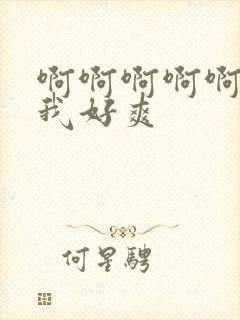 啊啊啊啊啊
我好爽
何星骋